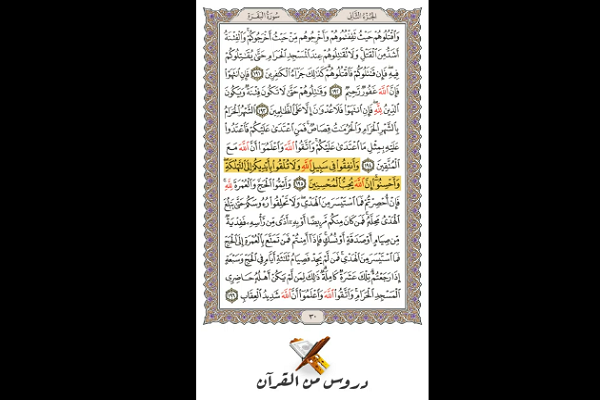 الجزء الثانى
سورة البقرة
وَاقْتُلُوهُمْ حَيْثُ ثَقِفْتُمُوهُمْ وَأَخْرِجُوهُم مِّنْ حَيْثُ أَخْرَجُوكُمْ وَالْفِتْنَةُ
أَشَدُّ مِنَ الْقَتْلِ وَلَا تُقَاتِلُوهُمْ عِندَ الْمَسْجِدِ الْحَرَامِ حَتَّىٰ يُقَاتِلُوكُمْ
فِيهِ فَإِن قَاتَلُوكُمْ فَاقْتُلُوهُمْ كَذَٰلِكَ جَزَاءُ الْكَافِرِينَ ١٩١ فَإِنِ انتَهَوْا
فَإِنَّ اللَّهَ غَفُورٌ رَّحِيمٌ ١٩٢ وَقَاتِلُوهُمْ حَتَّىٰ لَا تَكُونَ فِتْنَةٌ وَيَكُونَ
الدِّينُ لِلَّهِ فَإِنِ انتَهَوْا فَلَا عُدْوَانَ إِلَّا عَلَى الظَّالِمِينَ ١٩٣ الشَّهْرُ الْحَرَامُ
بِالشَّهْرِ الْحَرَامِ وَالْحُرُمَاتُ قِصَاصٌ فَمَنِ اعْتَدَىٰ عَلَيْكُمْ فَاعْتَدُوا
عَلَيْهِ بِمِثْلِ مَا اعْتَدَىٰ عَلَيْكُمْ وَاتَّقُوا اللَّهَ وَاعْلَمُوا أَنَّ اللَّهَ مَعَ
الْمُتَّقِينَ ١٩٤ وَأَنفِقُوا فِي سَبِيلِ اللَّهِ وَلَا تُلْقُوا بِأَيْدِيكُمْ إِلَى التَّهْلُكَةِ
وَأَحْسِنُوا إِنَّ اللَّهَ يُحِبُّ الْمُحْسِنِينَ ١٩٥ وَأَتِمُّوا الْحَجَّ وَالْعُمْرَةَ لِلَّهِ
فَإِنْ أُحْصِرْتُمْ فَمَا اسْتَيْسَرَ مِنَ الْهَدْيِ وَلَا تَحْلِقُوا رُءُوسَكُمْ حَتَّىٰ يَبْلُغَ
الْهَدْيُ مَحِلَّهُ فَمَن كَانَ مِنكُم مَّرِيضًا أَوْ بِهِ أَذًى مِّن رَّأْسِهِ فَفِدْيَةٌ
مِّن صِيَامٍ أَوْ صَدَقَةٍ أَوْ نُسُكٍ فَإِذَا أَمِنتُمْ فَمَن تَمَتَّعَ بِالْعُمْرَةِ إِلَى الْحَجِّ
فَمَا اسْتَيْسَرَ مِنَ الْهَدْيِ فَمَن لَّمْ يَجِدْ فَصِيَامُ ثَلَاثَةِ أَيَّامٍ فِي الْحَجِّ وَسَبْعَةٍ
إِذَا رَجَعْتُمْ تِلْكَ عَشَرَةٌ كَامِلَةٌ ذَٰلِكَ لِمَن لَّمْ يَكُنْ أَهْلُهُ حَاضِرِي
الْمَسْجِدِ الْحَرَامِ وَاتَّقُوا اللَّهَ وَاعْلَمُوا أَنَّ اللَّهَ شَدِيدُ الْعِقَابِ ١٩٦
٣٠
دروس من القرآن